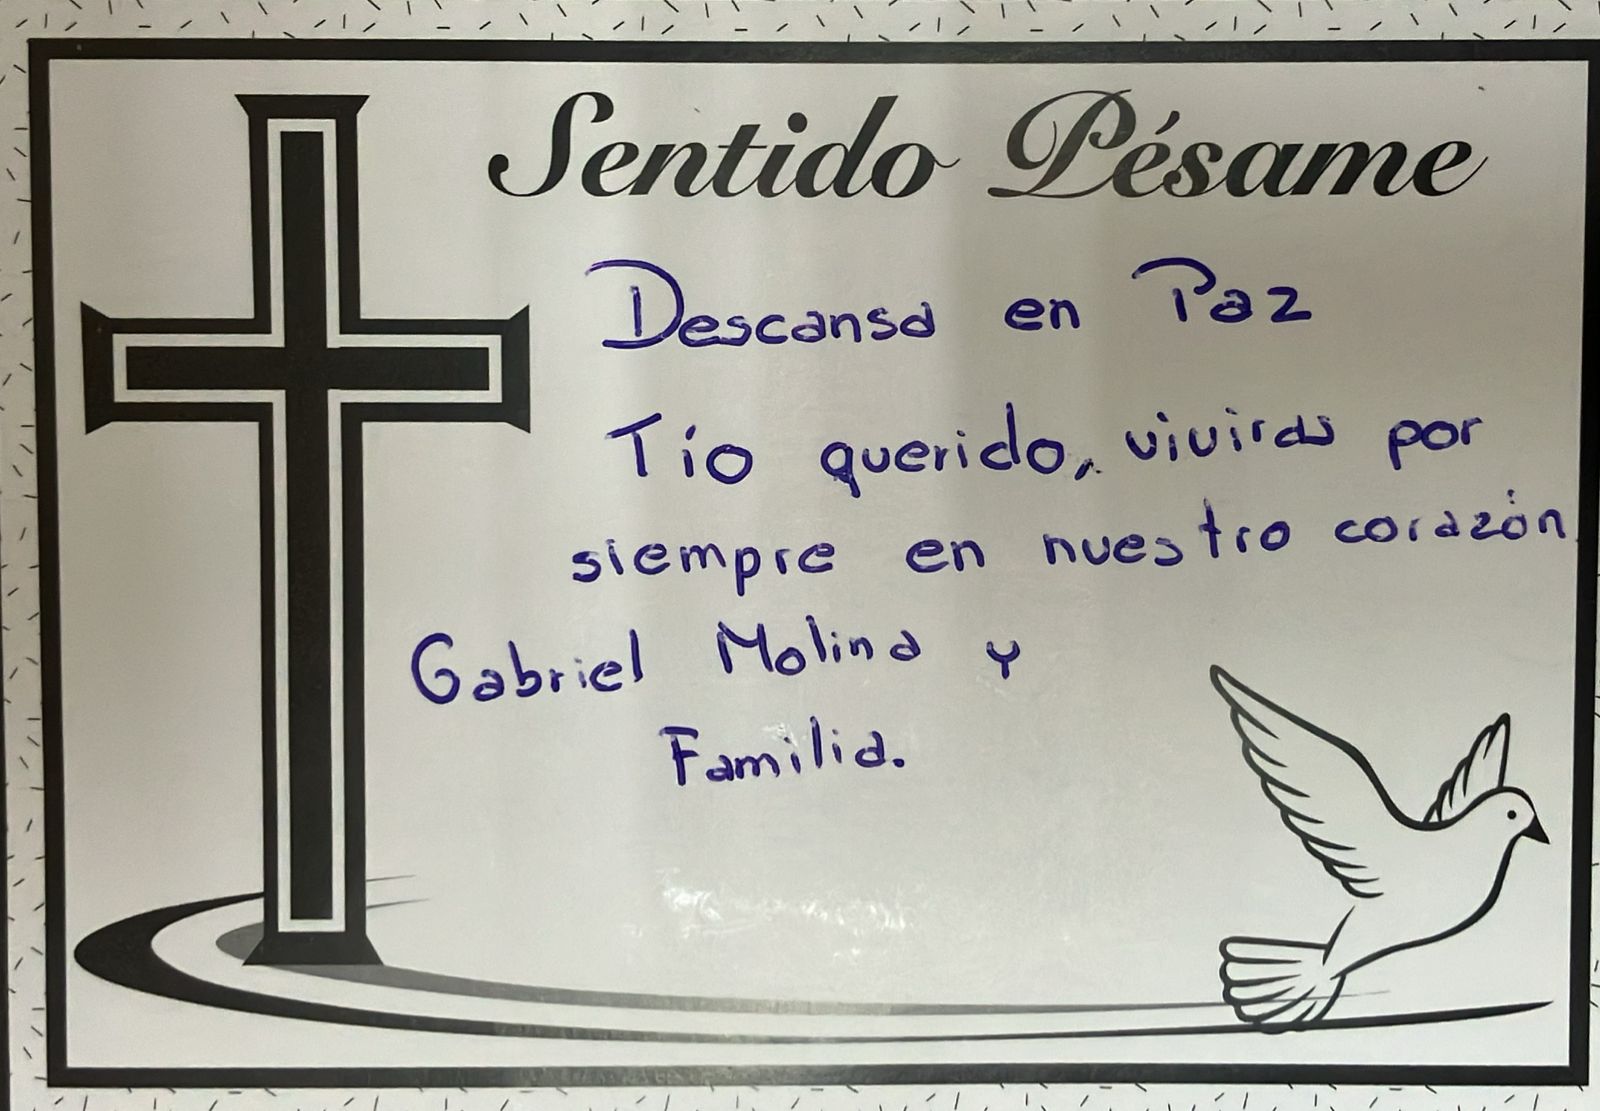 Sentido Pésame
Descansa en Paz
Tío querido, viviras por
siempre en nuestro corazón
Gabriel Molina y
Familia.